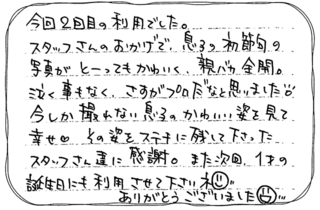 今回2回目の利用でした。
スタッフさんのおかげで、息子の初節句の
写真がとーってもかわいく、親バカ全開。
泣く事もなく、さすがプロだなと思いました
今しか撮れない息子のかわいい姿を見て
幸せ♡ その姿をステキに残して下さった
スタッフさん達に感謝。また次回、1才の
誕生日にも利用させて下さいネ
ありがとうございました